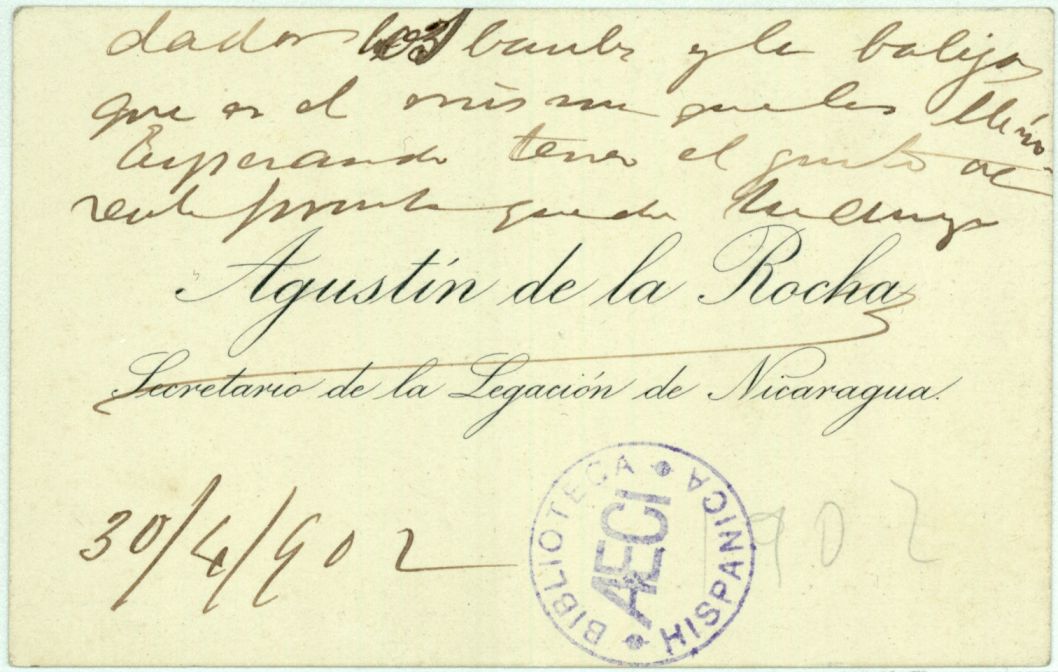 dador los 3 baules y la balija
que es el mismo que los llevó.
Esperando tener el gusto de
verle pronto queda su amigo
Agustín de la Rocha
Secretario de la Legación de Nicaragua.
30/4/902
902
BIBLIOTECA HISPANICA
AECI